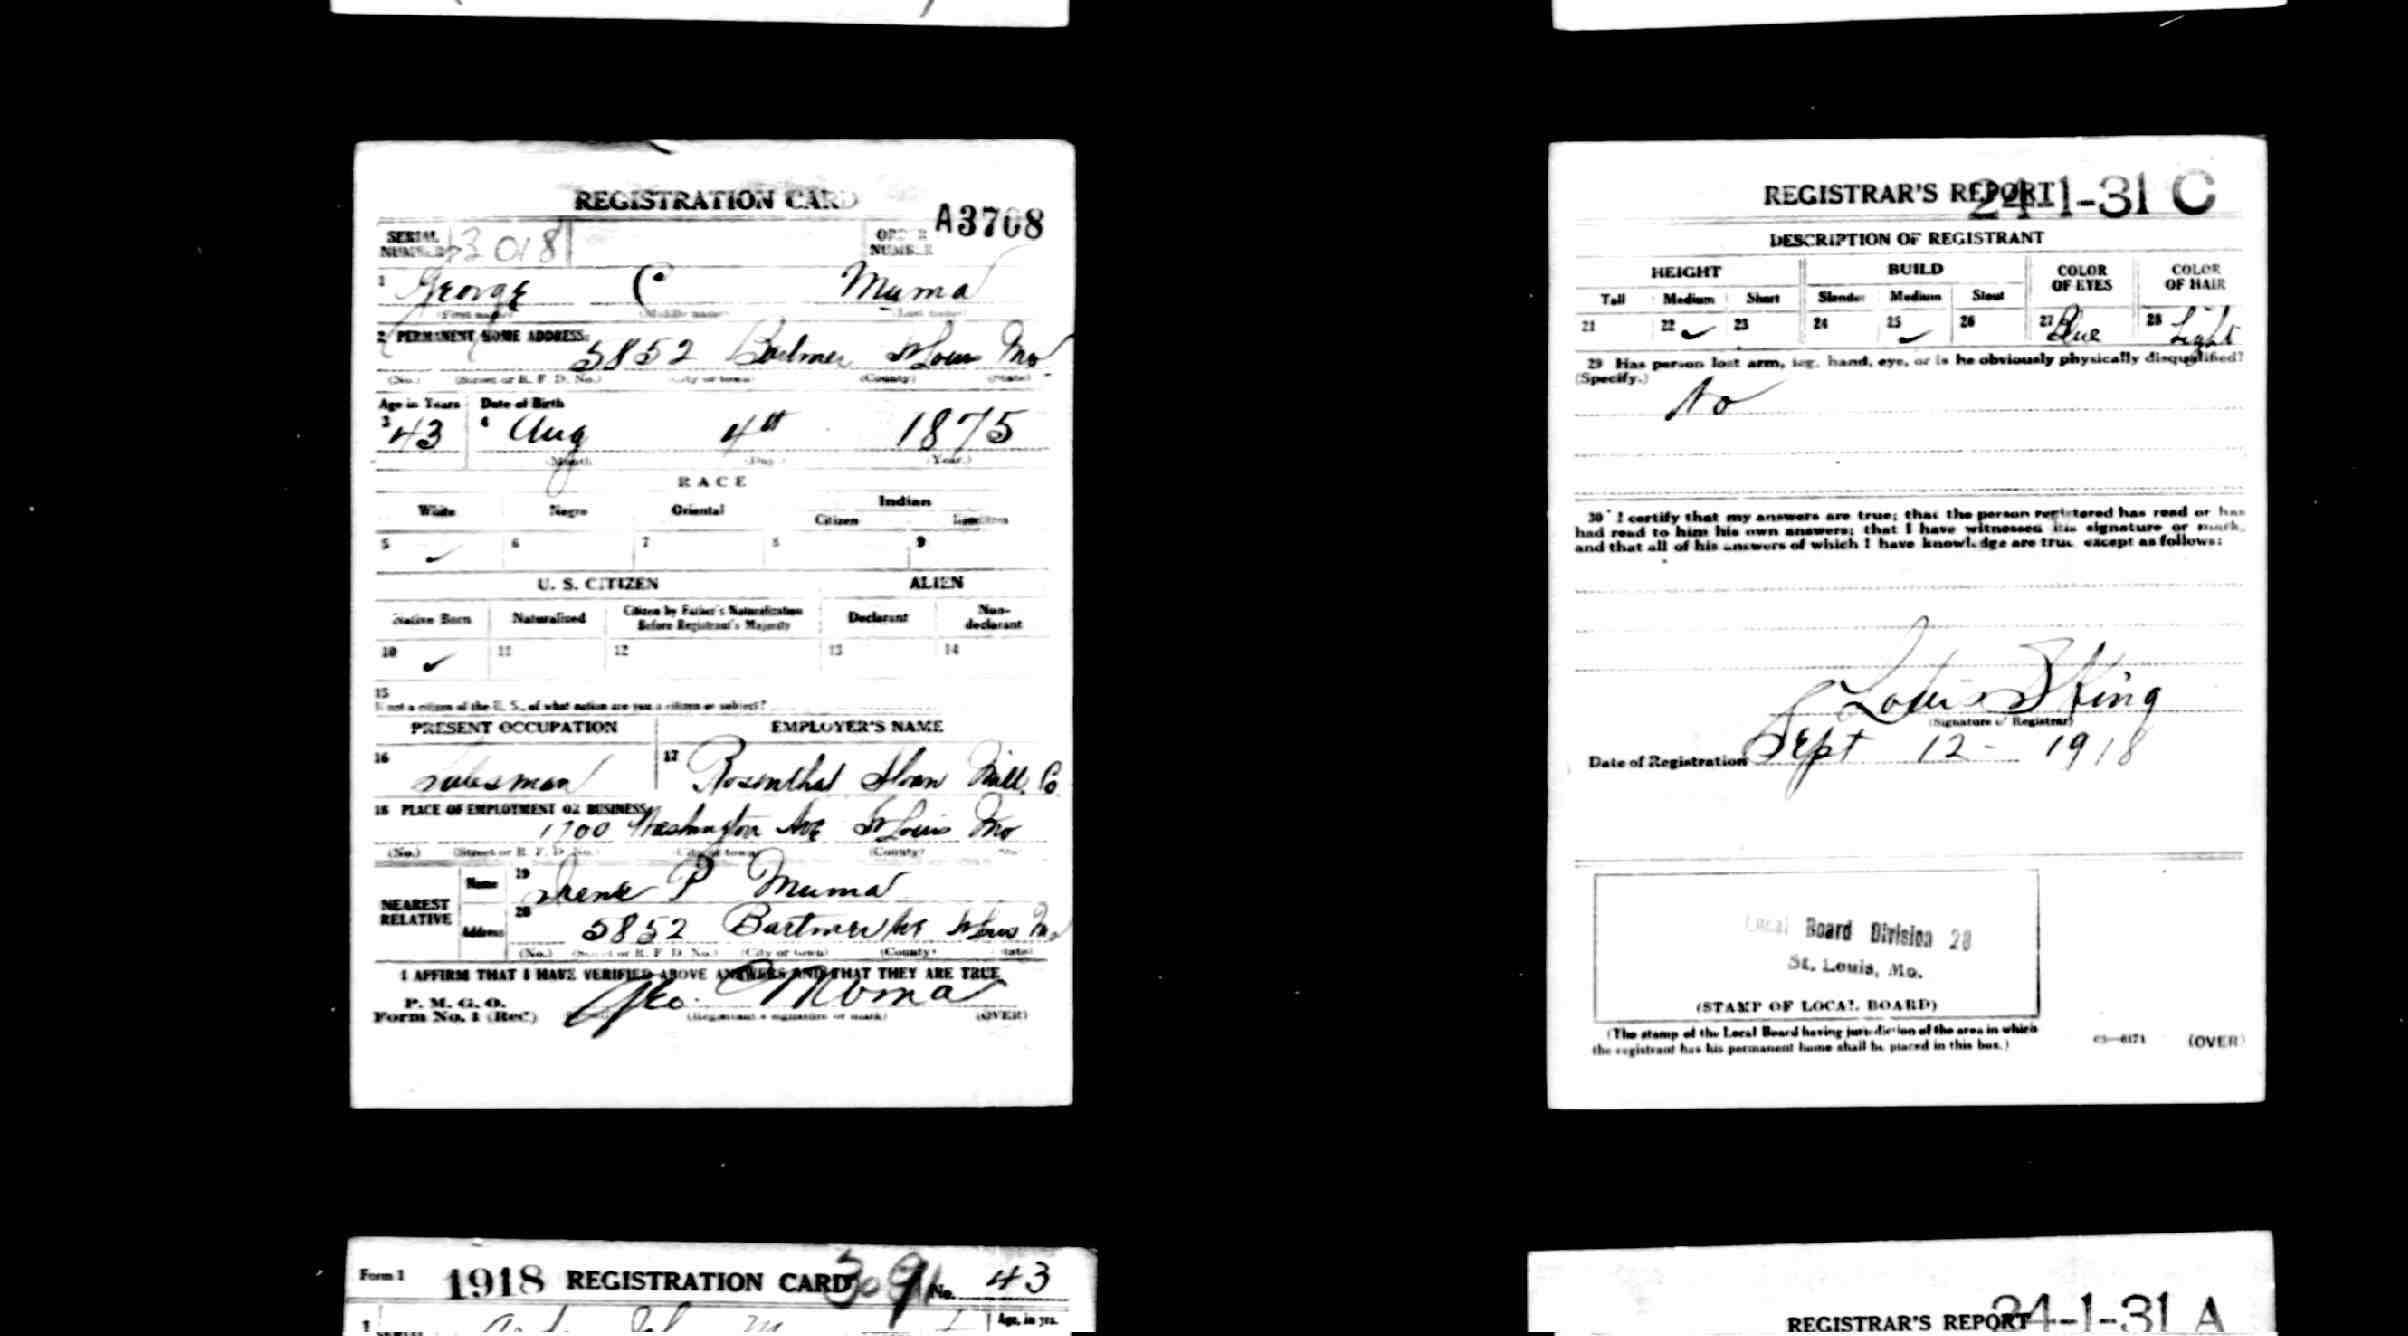 REGISTRATION CARD
SERIAL NUMBER 3018 ORDER NUMBER A3708
1 George C Muma
(First name) (Middle name) (Last name)
2 PERMANENT HOME ADDRESS:
5852 Bartmer St Louis Mo
(No.) (Street or R. F. D. No.) (City or town) (County) (State)
Age in Years Date of Birth
3 43 4 Aug 4th 1875
(Month) (Day.) (Year.)
RACE
White Negro Oriental Indian
Citizen
5 ✓ 6 7 8 9
U. S. CITIZEN ALIEN
Native Born Naturalized Citizen by Father's Naturalization Before Registrant's Majority Declarant Non-declarant
10 ✓ 11 12 13 14
15
If not a citizen of the U. S., of what nation are you a citizen or subject?
PRESENT OCCUPATION EMPLOYER'S NAME
16 Salesman 17 Rosenthal Sloan Mill. Co
18 PLACE OF EMPLOYMENT OR BUSINESS
1700 Washington Ave St Louis Mo
(No.) (Street or R. F. D. No.) (City or town) (County)
NEAREST RELATIVE
Name 19 Irene P Muma
Address 20 5852 Bartmer Ave St Louis Mo
(No.) (Street or R. F. D. No.) (City or town) (County) (State)
I AFFIRM THAT I HAVE VERIFIED ABOVE ANSWERS AND THAT THEY ARE TRUE
P. M. G. O.
Form No. 1 (Red) Geo. C Muma
(Registrant's signature or mark) (OVER)
REGISTRAR'S REPORT 24-1-31 C
DESCRIPTION OF REGISTRANT
HEIGHT BUILD COLOR OF EYES COLOR OF HAIR
Tall Medium Short Slender Medium Stout
21 22 ✓ 23 24 25 ✓ 26 27 Blue 28 Light
29 Has person lost arm, leg, hand, eye, or is he obviously physically disqualified?
(Specify.)
No
30 I certify that my answers are true; that the person registered has read or has
had read to him his own answers; that I have witnessed his signature or mark,
and that all of his answers of which I have knowledge are true, except as follows:
Louis S King
(Signature of Registrar)
Date of Registration Sept 12 - 1918
Local Board Division 28
St. Louis, Mo.
(STAMP OF LOCAL BOARD)
(The stamp of the Local Board having jurisdiction of the area in which
the registrant has his permanent home shall be placed in this box.)
03—6171 (OVER)
Form 1 1918 REGISTRATION CARD No. 43
1 Age, in yrs.
REGISTRAR'S REPORT 24-1-31 A